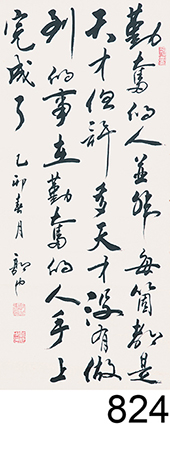 勤奮的人並非每箇都是
天才但許多天才沒有做
到的事在勤奮的人手上
完成了
乙卯春月
824